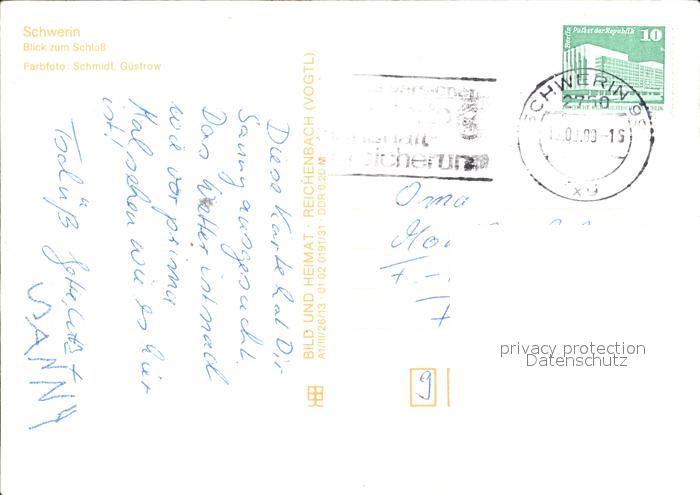 Schwerin
Blick zum Schloß
Farbfoto: Schmidt, Güstrow
Diese Karte hat Dir
Sanny ausgesucht.
Das Wetter ist nach
wie vor prima
Mal sehen wie es hier
ist!
Tschüß
SANNY
BILD UND HEIMAT · REICHENBACH (VOGTL)
A1/III/26/13 01 02 0191/31 DDR 0,20 M
Berlin Palast der Republik 10
SCHWERIN
2750
sicherung
Oma
9
privacy protection
Datenschutz